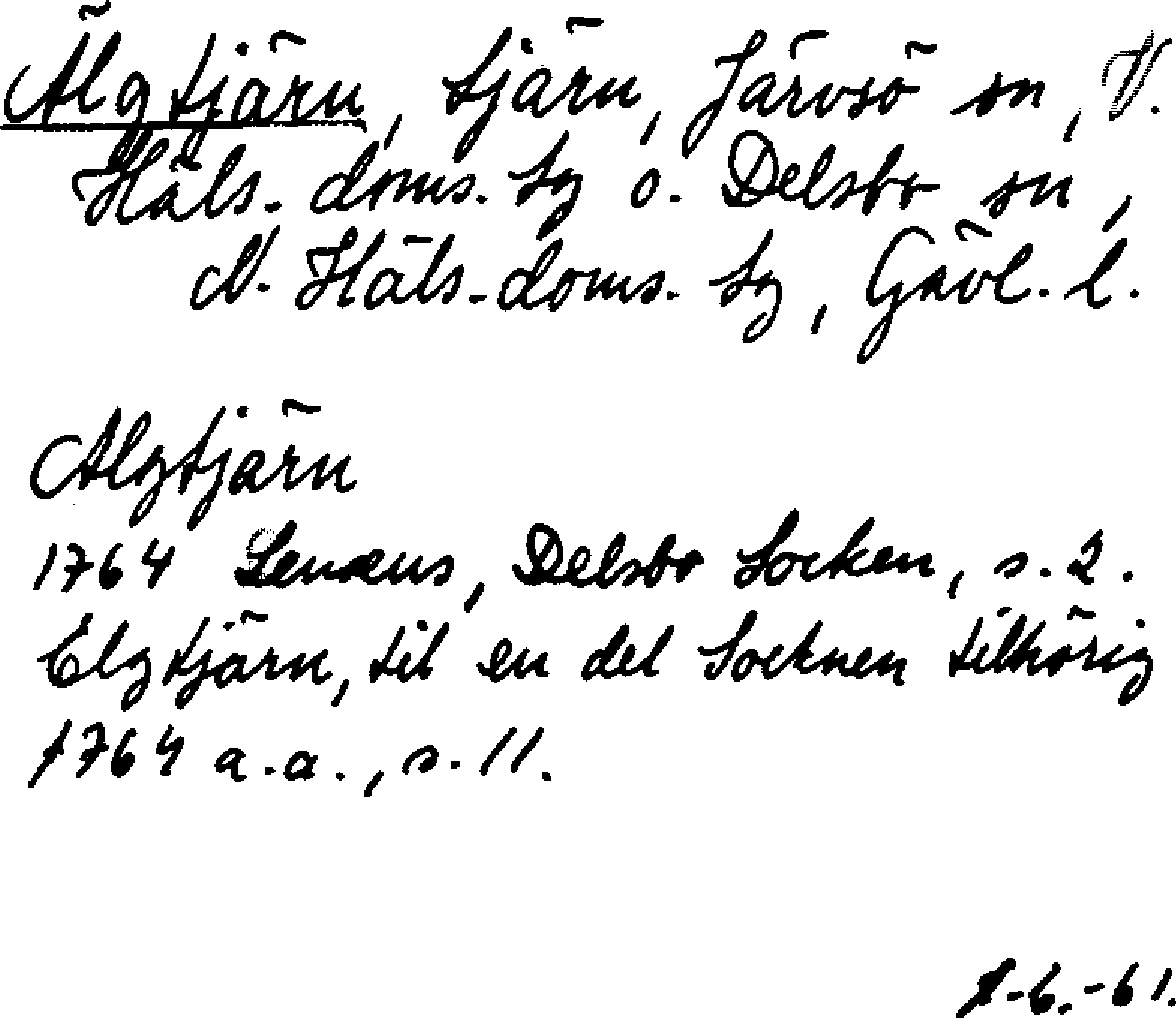 Älgtjärn, tjärn, Järvsö sn, V.
Häls. doms. sg o. Delsbo sn,
N. Häls. doms. sg, Gävl. l.
Algtjärn
1764 Lenæus, Delsbo Socken, s. 2.
Elgtjärn, til en del Socknen tilhörig
1764 a.a., s. 11.
1-6.-61.